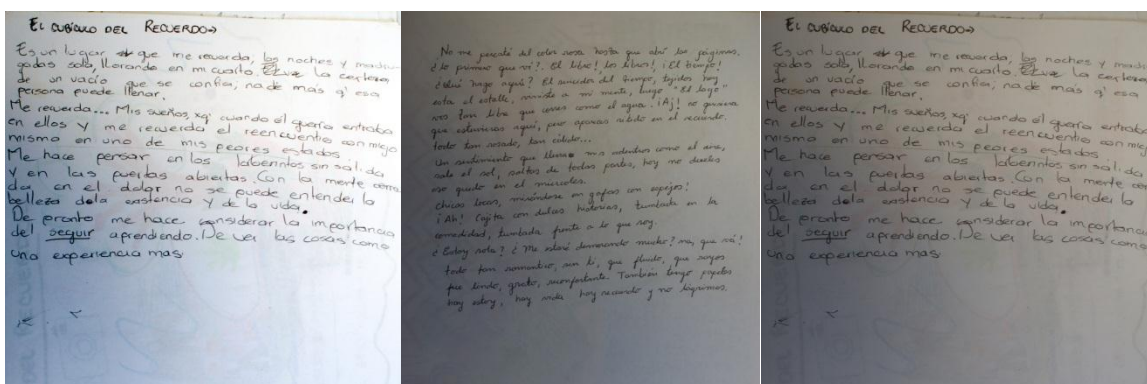 EL CUBÍCULO DEL RECUERDO→
Es un lugar que me recuerda, las noches y madru-
gadas sola, llorando en mi cuarto. La certeza
de un vacío que se confia, nade mas q' esa
persona puede llenar.
Me recuerda... Mis sueños, xq' cuando el quería entraba
en ellos y me recuerda el reencuentro con migo
mismo en uno de mis peores estados.
Me hace pensar en los laberintos sin salida
y en las puertas abiertas. Con la mente cerra
da en el dolor no se puede entender la
belleza dela existencia y de la vida.
De pronto me hace considerar la importancia
del seguir aprendiendo. De ver las cosas como
una experiencia mas
No me percaté del color rosa hasta que abrí las páginas.
¿Lo primero que vi?. El libro!, los libros!, ¡El tiempo!
¿Qué hago aquí? El del tiempo, tejidos hay
esta el estalle, a mi mente, luego "El loge"
tan libre que corres como el agua. ¡Aj! no quisiera
que estuvieras aquí, pero apareces nítido en el recuerdo.
todo tan rosado, tan cálido...
Un sentimiento que llena mis adentros como el aire,
sale el sol, saltos de todas partes, hoy me duelen
ese quedo en el
chicas locas, mirándose en gafas con espejos!
¡Ah! Cajita con dulces historias, tumbada en la
comodidad, tumbada frente a lo que soy.
¿Estoy sola? ¿Me estaré demorando mucho? no, que va!
todo tan romántico, sin ti, que fluido, que
fue lindo, grato, reconfortante. También tengo
hoy estoy, hay vida hay recuerdo y no lágrimas.
EL CUBÍCULO DEL RECUERDO→
Es un lugar que me recuerda, las noches y madru-
gadas sola, llorando en mi cuarto. La certeza
de un vacío que se confia, nade mas q' esa
persona puede llenar.
Me recuerda... Mis sueños, xq' cuando el quería entraba
en ellos y me recuerda el reencuentro con migo
mismo en uno de mis peores estados.
Me hace pensar en los laberintos sin salida
y en las puertas abiertas. Con la mente cerra
da en el dolor no se puede entender la
belleza dela existencia y de la vida.
De pronto me hace considerar la importancia
del seguir aprendiendo. De ver las cosas como
una experiencia mas